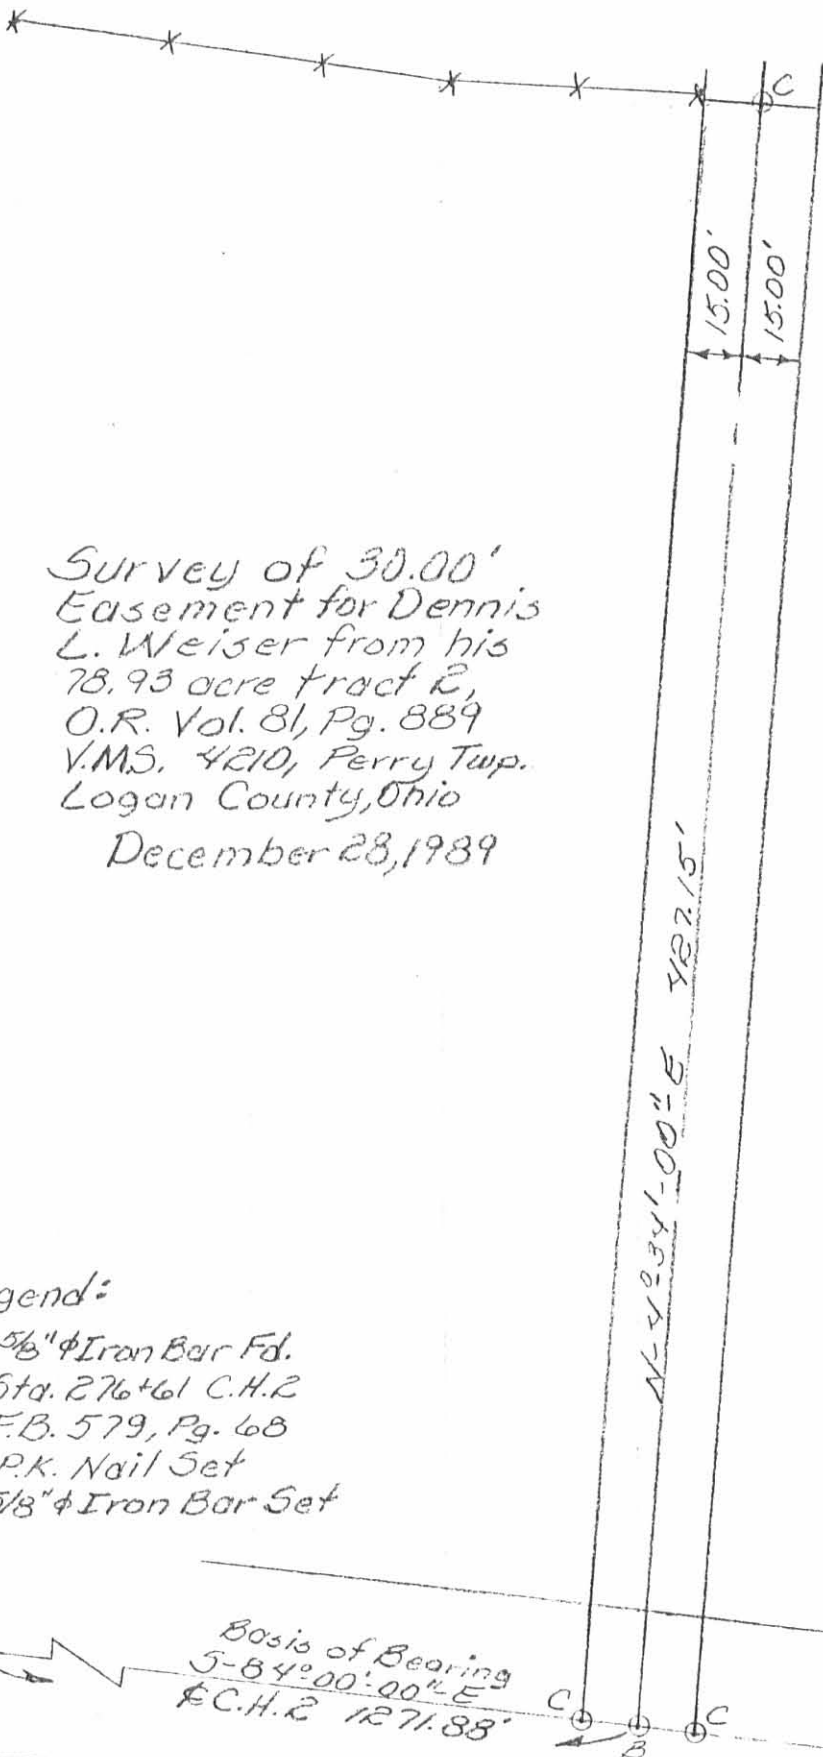 C
15.00'
15.00'
Survey of 30.00'
Easement for Dennis
L. Weiser from his
78.93 acre tract 2,
O.R. Vol. 81, Pg. 889
V.M.S. 4210, Perry Twp.
Logan County, Ohio
December 28, 1989
N-4°-34'-00"-E 427.15'
gend:
5/8"ϕ Iron Bar Fd.
Sta. 276+61 C.H.2
F.B. 579, Pg. 68
P.K. Nail Set
5/8"ϕ Iron Bar Set
Basis of Bearing
S-84°-00'-00"-E
℄ C.H.2 1271.88'
C
B
C